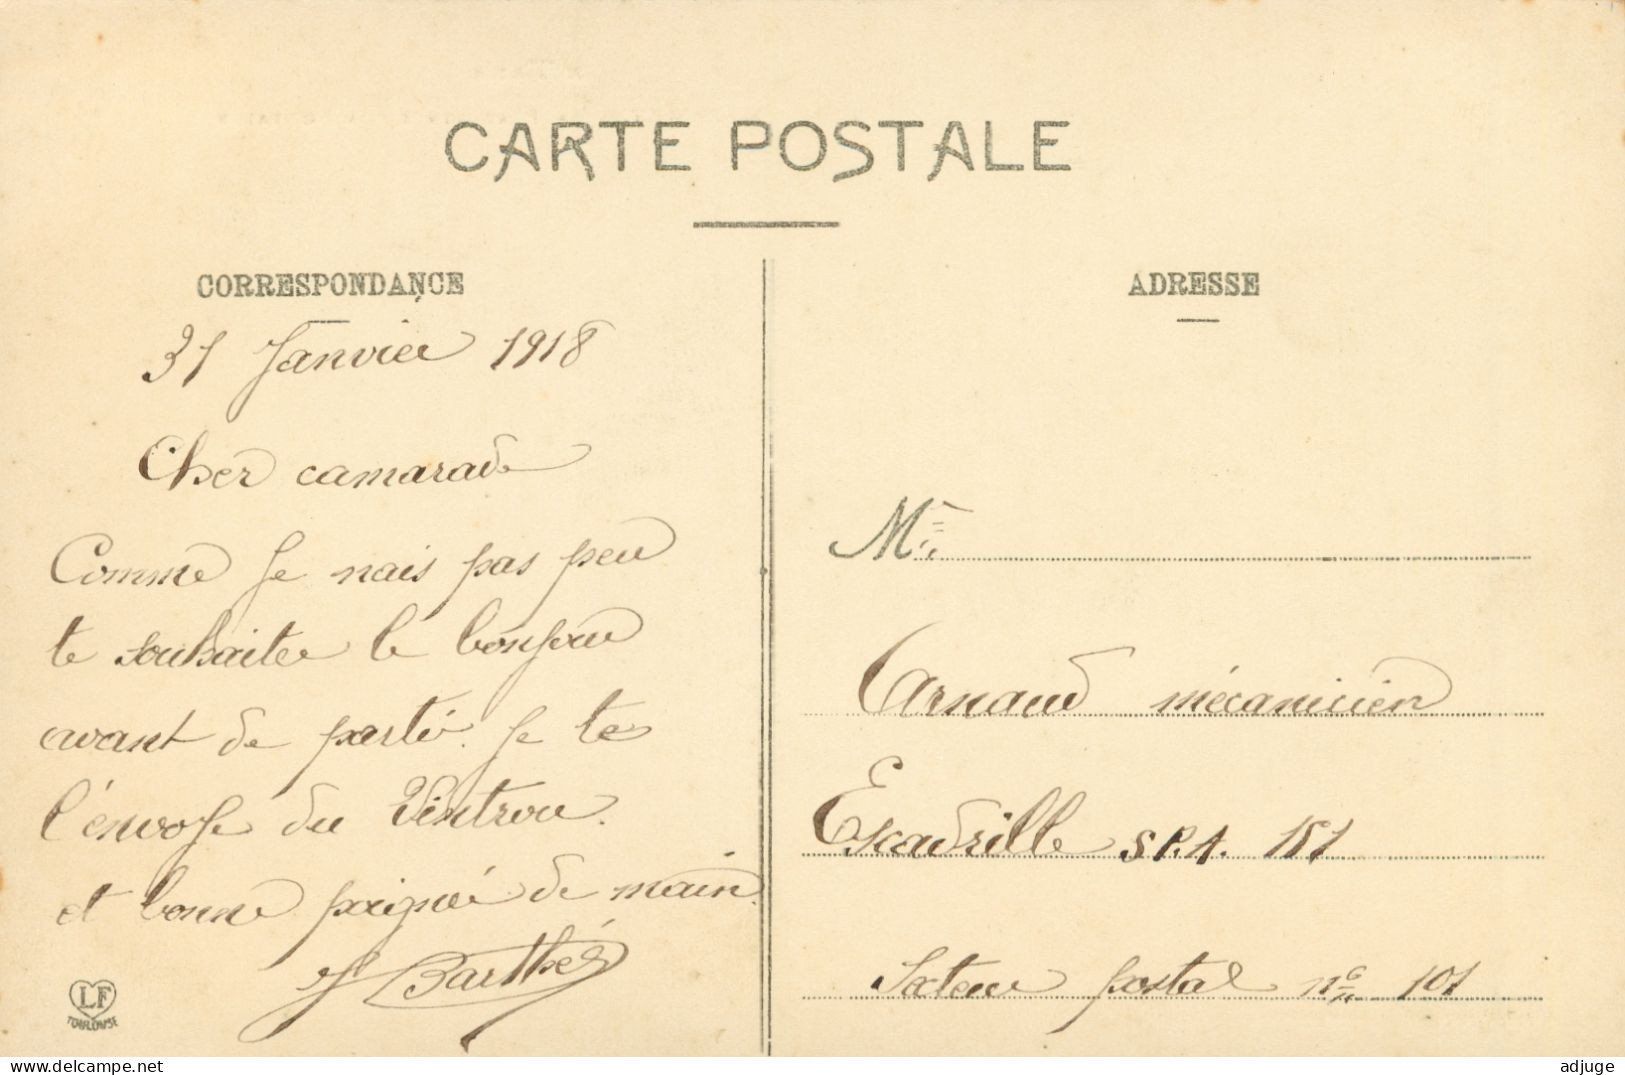 CARTE POSTALE
CORRESPONDANCE
31 Janvier 1918
Cher camarade
Comme Je nais pas peu
te souhaiter le bonjour
avant de partir. Je te
l'envoje du Vintrou.
et bonne poignée de main.
J Barthés
LF
TOULOUSE
ADRESSE
M
Arnaud mécanicien
Escadrille S.P.A. 151
Secteur postal n° 101
adjuge